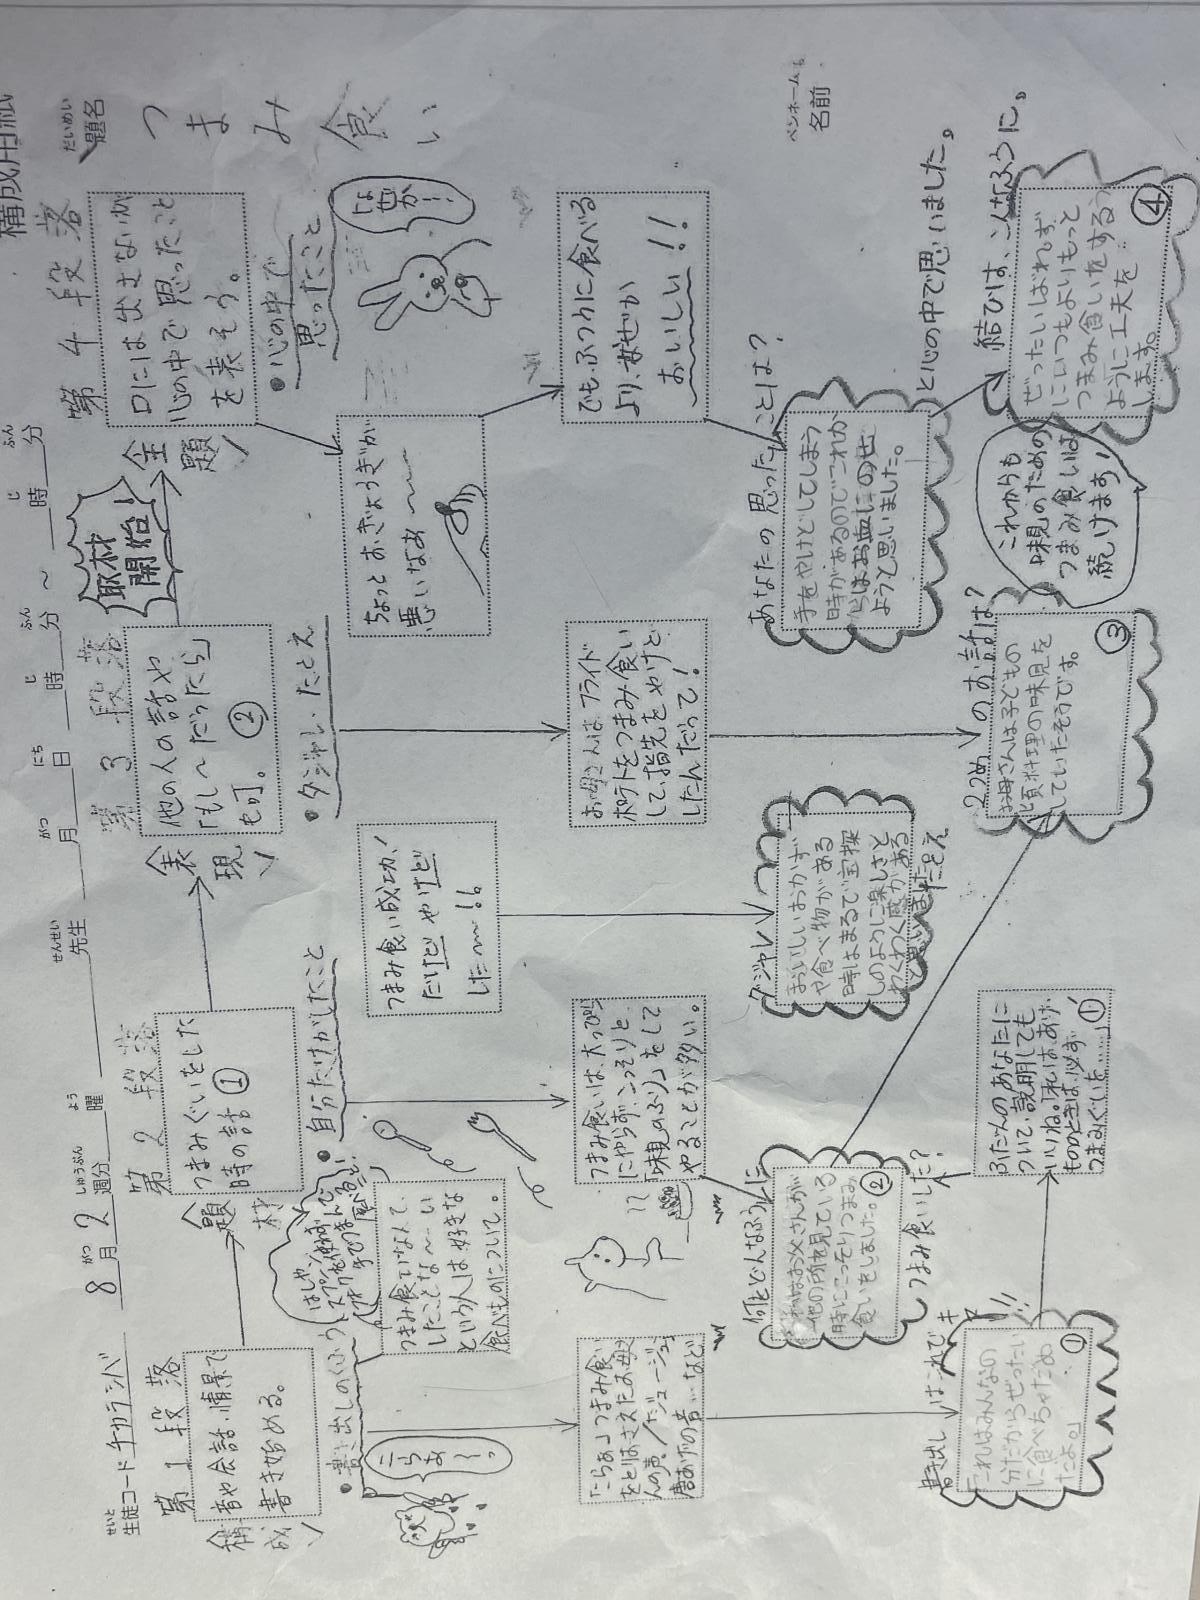 構成用紙
だいめい
題名
つまみ食い
ペンネームも
名前
せいと
生徒コード チカラシバ
8 がつ
月 2 しゅうぶん
週分 よう
曜
せんせい
先生
がつ
月 にち
日 じ
時 ふん
分 ~ じ
時 ふん
分
第1段落
構成
音や会話、情景で
書き始める。
・書き出しのくふう
こらぁ~っ
「こらぁ」つまみ食い
をとりはさえたお母
んの声/「ジュージュ」
唐あげの音…など
書き出しはこれでキマ
「これはみんなの
分だからぜったい
に食べちゃだめ
だよ。」
①
第2段落
題材
つまみぐいをした
時の話 ①
・自分だけがしたこと
はしや、
スプーン、
フォークを使わず
手でつまんで
つまみ食いなんて、
したことな~い
という人は好きな
食べものについて。
つまみ食いは、大っぴら
にやらず、こっそりと、
「味見のふり」をして
やることが多い。
何をどんなふうに
つまみ食いした?
それはお父さんが
他の所を見ている
時にこっそりつまみ
食いをしました。
②
ふだんのあなたに
ついて、説明しても
いいね。「私は、あげ
もののときは、必ず
つまみぐいを……」
①´
第3段落
表現
他の人の話や
「もし~だったら」
も可。 ②
・ダジャレ・たとえ
つまみ食い成功!
だけど やけど
した~!!
お母さんはフライド
ポテトをつまみ食い
して、指先をやけど
したんだって!
ダジャレ
たとえ
おいしいおかず
や食べ物がある
時はまるで宝探
しのように楽しさと
わくわく感がある
と思いました
2つめのお話は?
お母さんは子どもの
頃料理の味見を
していたそうです。
③
取材
開始!
第4段落
主題
口には出さないが
心の中で思ったこと
を表そう。
・心の中で
思ったこと
なぜか…
ちょっとおぎょうぎが
悪いなぁ~~
でも、ふつうに食べる
より、なぜか
おいしい!!
あなたの思ったことは?
手をやけどしてしまう
時があるのでこれか
らはお皿にのせ
ようと思いました。
と心の中で思いました。
結びは、こんなふうに。
これからも
味見のための
つまみ食いは
続けます!
ぜったいばれず
にいつもよりもっと
つまみ食いをする
ように工夫を
します。
④